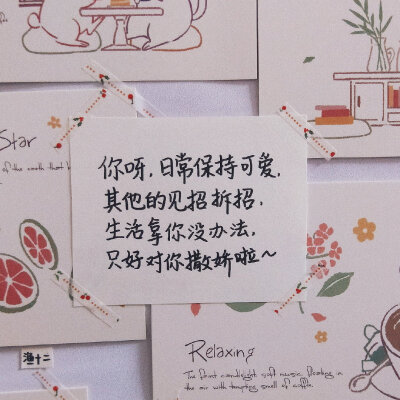 Star
你呀,日常保持可爱,
其他的见招拆招,
生活拿你没办法,
只好对你撒娇啦~
渔十二
Relaxing
The faint candlelight soft music, floating in
the air with tempting smell of coffee.